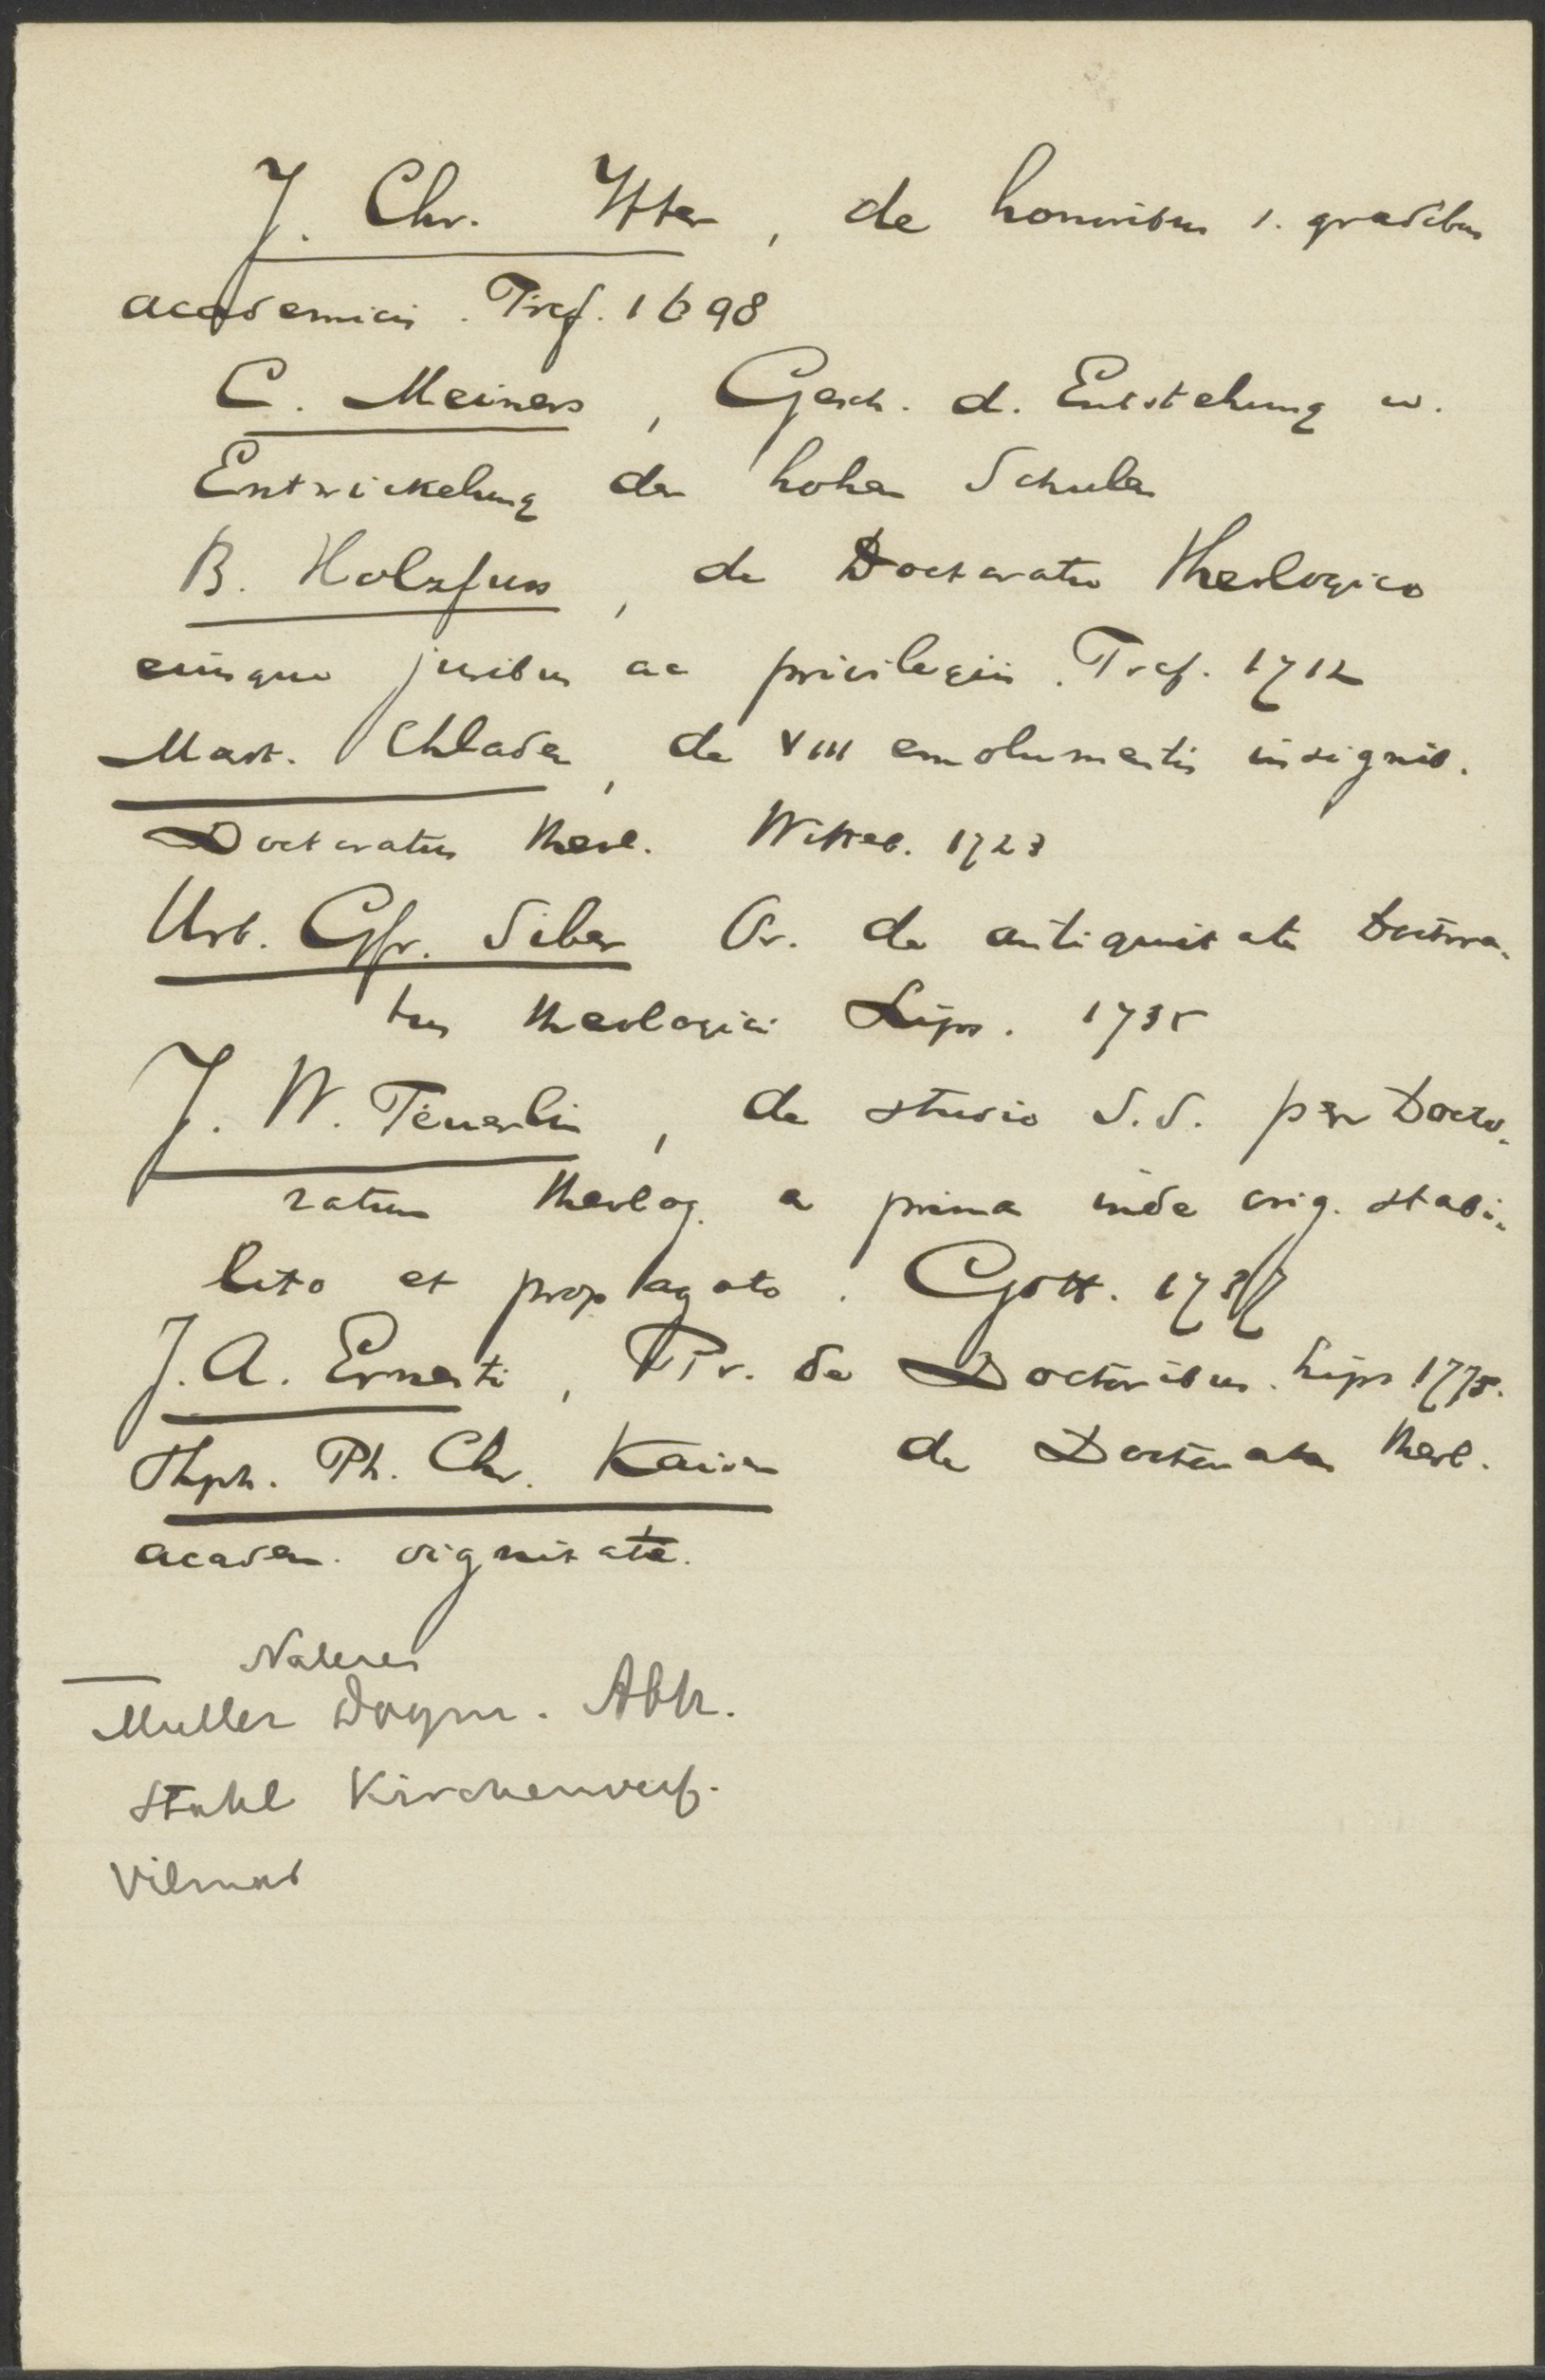 J. Chr. Itter, de honoribus s. gradibus
academicis. Tref. 1698
C. Meiners, Gesch. d. Entstehung u.
Entwickelung der hohen Schulen
B. Holzfuss, de Doctoratu Theologico
eiusque juribus ac privilegiis. Tref. 1712
Mart. Chladen, de VIII emolumentis insignib.
Doctoratus theol. Witteb. 1723
Urb. Gfr. Siber Or. de antiquitate Doctora-
tus theologici Lips. 1735
J. W. Feuerlin, de studio S.S. per Docto-
ratum theolog. a prima inde orig. stabi-
lito et propagato. Gött. 1737
J. A. Ernesti, Pr. de Doctoribus. Lips 1775.
Thph. Ph. Chr. Kaiser de Doctoratus theol.
academ. dignitate.
Müller Dogm. Abh.
Stahl Kirchenverf.
Vilmar